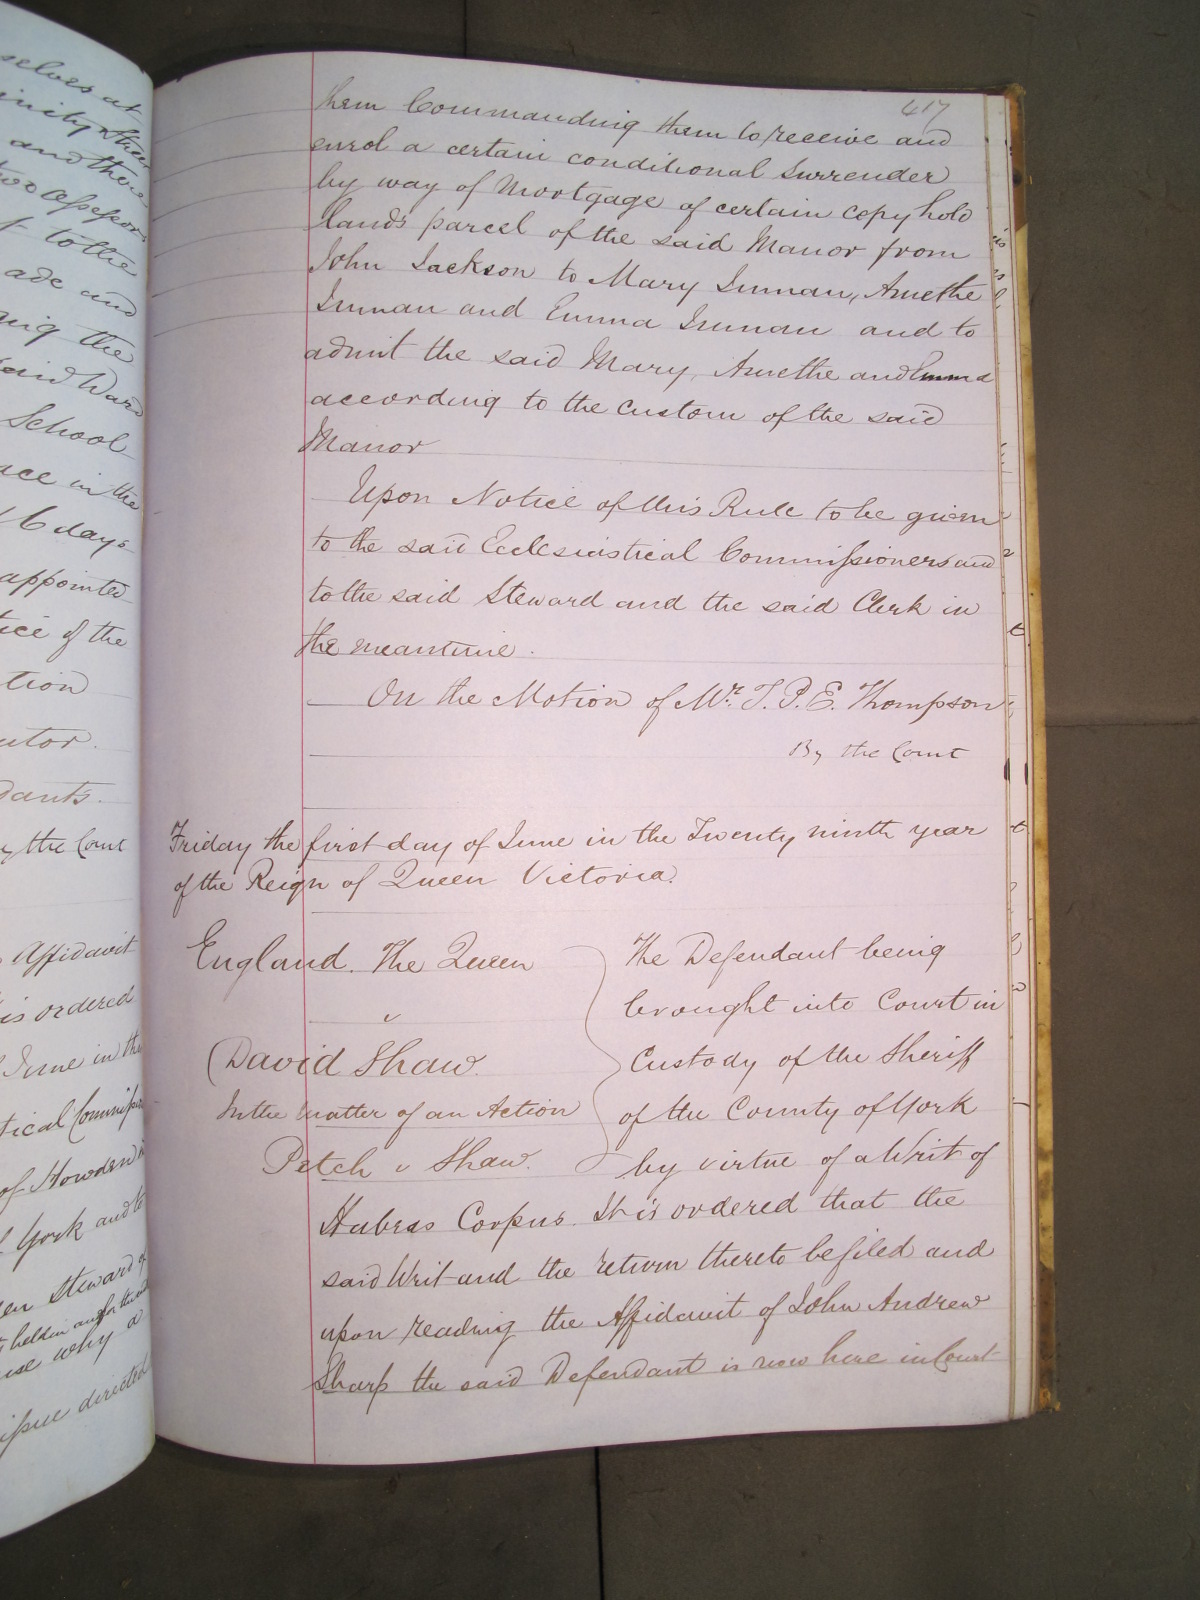 selves at
and there
two assessors
to the
ade and
ing the
said Ward
School
ace in the
6 days
appointed
tice of the
tion
utor.
dants.
By the Court
Affidavit
is ordered
June in the
of Howden
York and to
Steward of
use why a
issue directed
417
them Commanding them to receive and
enrol a certain conditional Surrender
by way of Mortgage of certain copyhold
lands parcel of the said Manor from
John Jackson to Mary Inman, Amethe
Inman and Emma Inman and to
admit the said Mary, Amethe and Emma
according to the custom of the said
Manor
Upon Notice of this Rule to be given
to the said Ecclesiastical Commissioners and
to the said Steward and the said Clerk in
the meantime.
On the Motion of Mr. T. P. E. Thompson
By the Court
Friday the first day of June in the Twenty ninth year
of the Reign of Queen Victoria.
England. The Queen
v
David Shaw.
In the matter of an Action
Petch v Shaw.
The Defendant being
brought into Court in
Custody of the Sheriff
of the County of York
by virtue of a Writ of
Habeas Corpus. It is ordered that the
said Writ and the return thereto be filed and
upon reading the Affidavit of John Andrew
Sharp the said Defendant is now here in Court